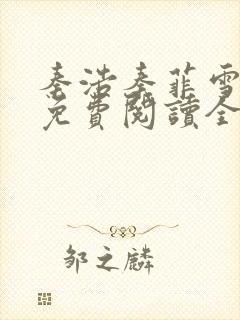 秦浩秦菲雪
免費閱讀全
邹之麟